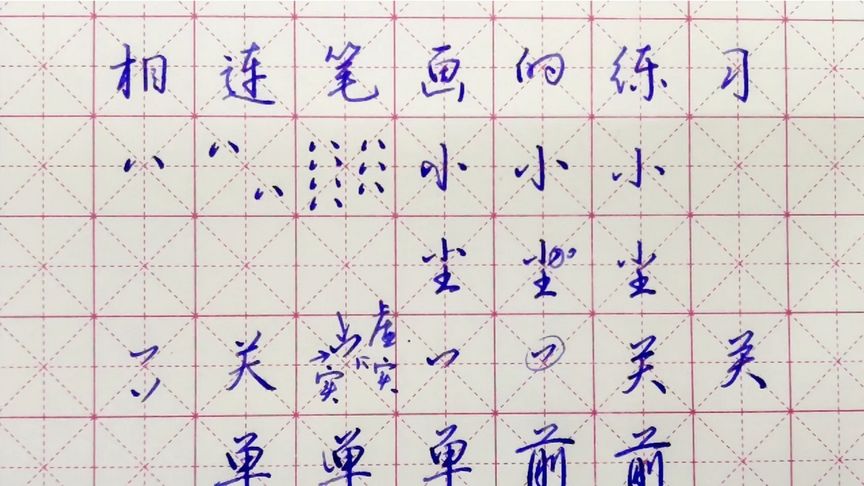 相连笔画的练习
小小小
尘尘尘
关 虚实实关关
单单单前前